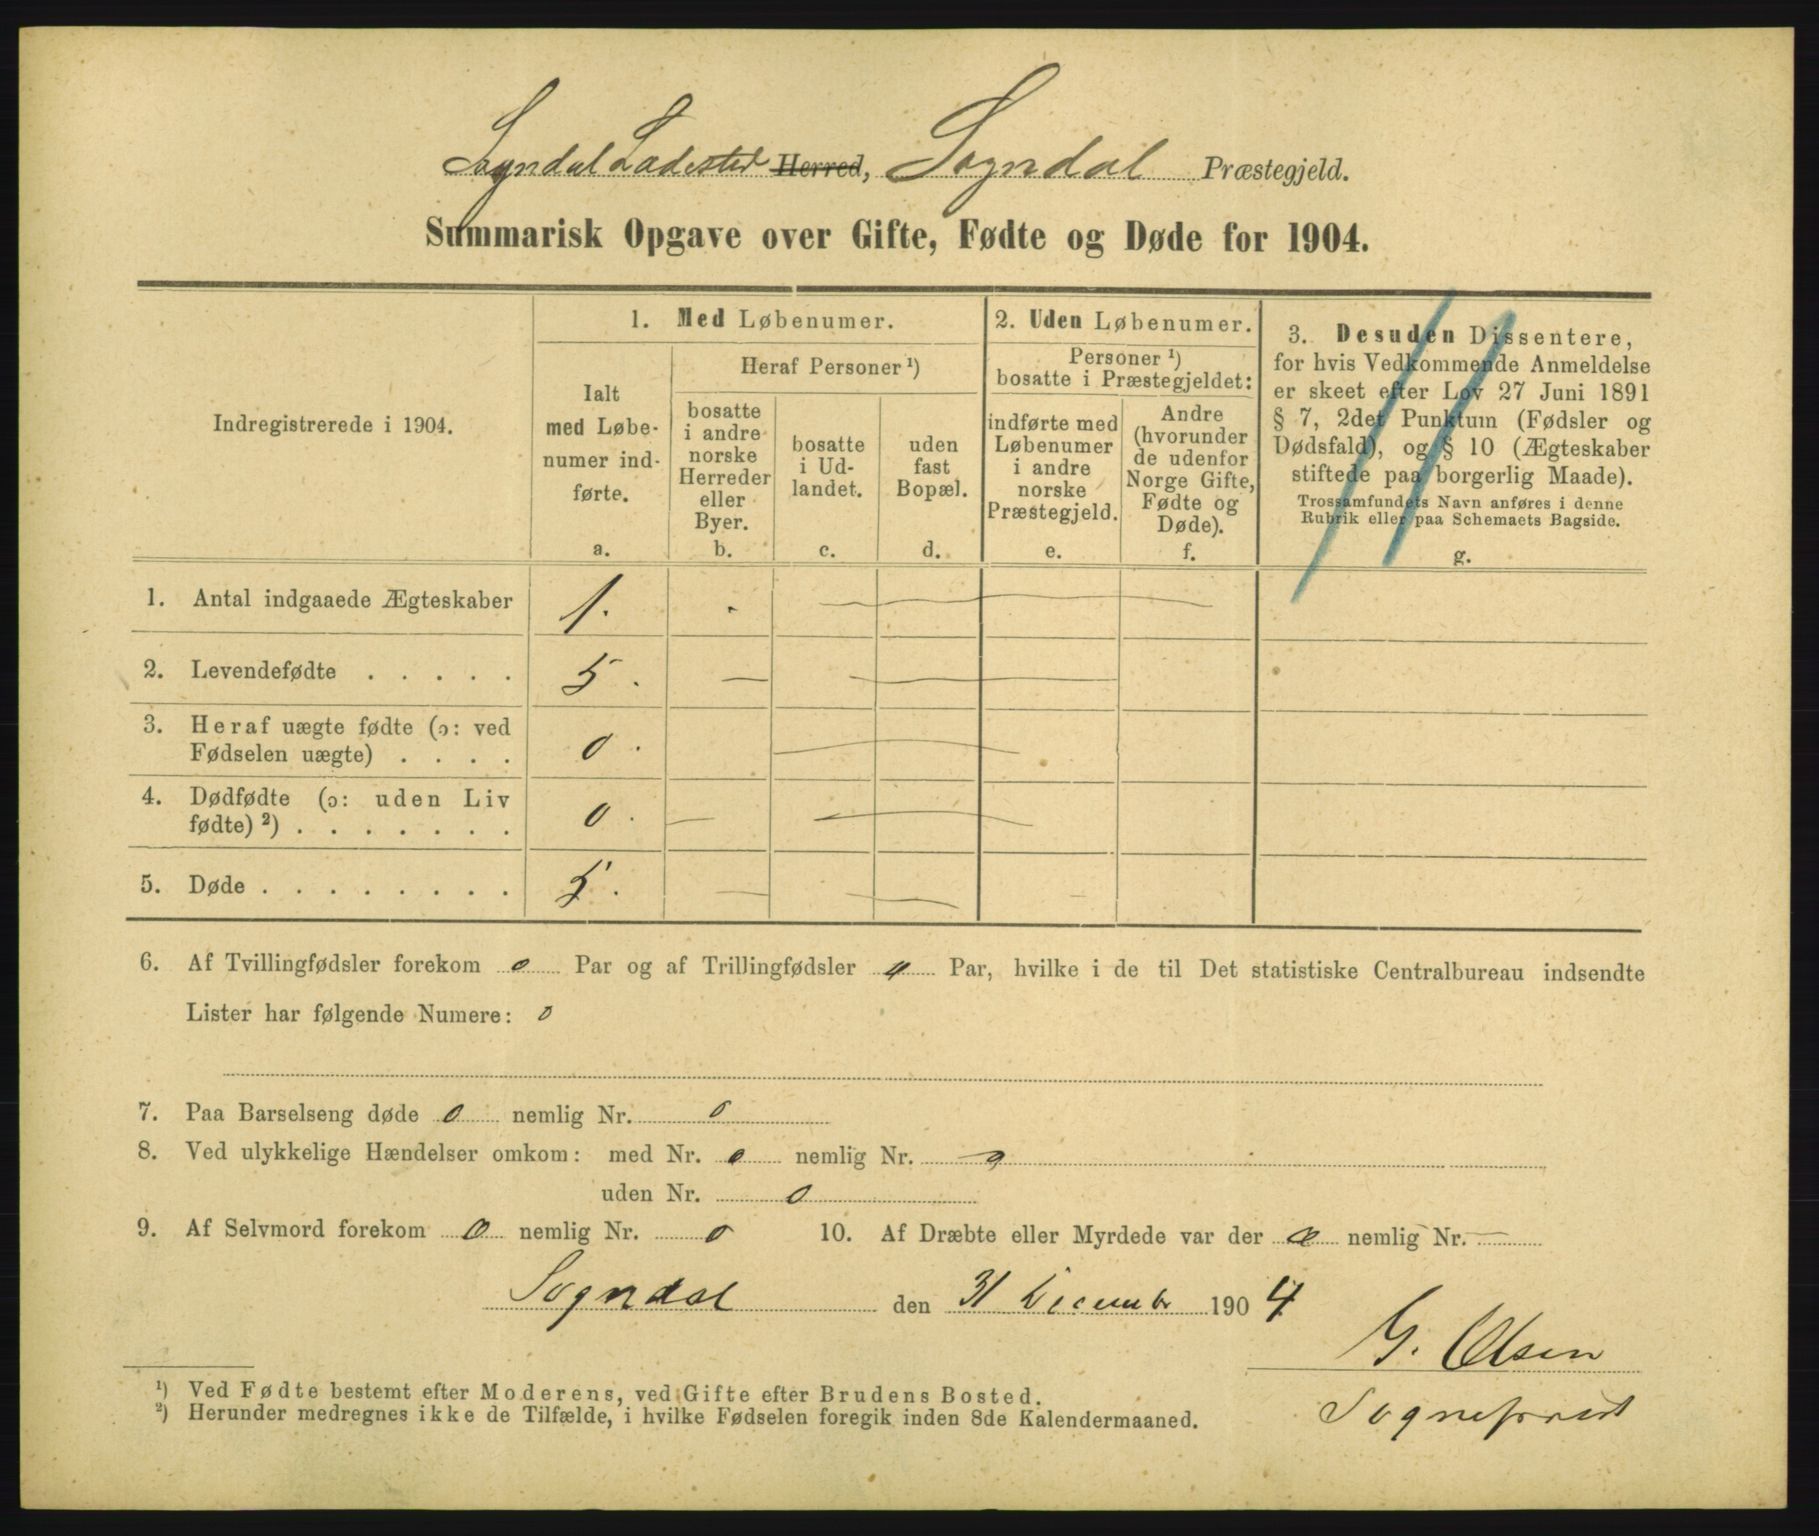 Sogndal Ladested Herred, Sogndal Præstegjeld.
Summarisk Opgave over Gifte, Fødte og Døde for 1904.
Indregistrerede i 1904.
1. Med Løbenumer.
Ialt
med Løbe-
numer ind-
førte.
a.
Heraf Personer ¹)
bosatte
i andre
norske
Herreder
eller
Byer.
b.
bosatte
i Ud-
landet.
c.
uden
fast
Bopæl.
d.
2. Uden Løbenumer.
Personer ¹)
bosatte i Præstegjeldet:
indførte med
Løbenumer
i andre
norske
Præstegjeld.
e.
Andre
(hvorunder
de udenfor
Norge Gifte,
Fødte og
Døde).
f.
3. Desuden Dissentere,
for hvis Vedkommende Anmeldelse
er skeet efter Lov 27 Juni 1891
§ 7, 2det Punktum (Fødsler og
Dødsfald), og § 10 (Ægteskaber
stiftede paa borgerlig Maade).
Trossamfundets Navn anføres i denne
Rubrik eller paa Schemaets Bagside.
g.
1. Antal indgaaede Ægteskaber 1. - —
2. Levendefødte . . . . . 5. — —
3. Heraf uægte fødte (ɔ: ved
Fødselen uægte) . . . . 0. —
4. Dødfødte (ɔ: uden Liv
fødte) ²) . . . . . . . 0. — —
5. Døde . . . . . . . . 5. — —
6. Af Tvillingfødsler forekom 0 Par og af Trillingfødsler 0 Par, hvilke i de til Det statistiske Centralbureau indsendte
Lister har følgende Numere: 0
7. Paa Barselseng døde 0 nemlig Nr. 0
8. Ved ulykkelige Hændelser omkom: med Nr. 0 nemlig Nr. 0
uden Nr. 0
9. Af Selvmord forekom 0 nemlig Nr. 0 10. Af Dræbte eller Myrdede var der 0 nemlig Nr. —
Sogndal den 31 December 1904
G. Olsen
Sogneprest
¹) Ved Fødte bestemt efter Moderens, ved Gifte efter Brudens Bosted.
²) Herunder medregnes ikke de Tilfælde, i hvilke Fødselen foregik inden 8de Kalendermaaned.